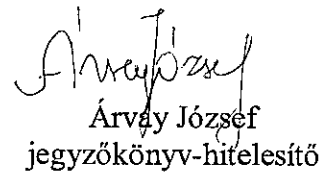 Árvay József
Árvay József
jegyzőkönyv-hitelesítő